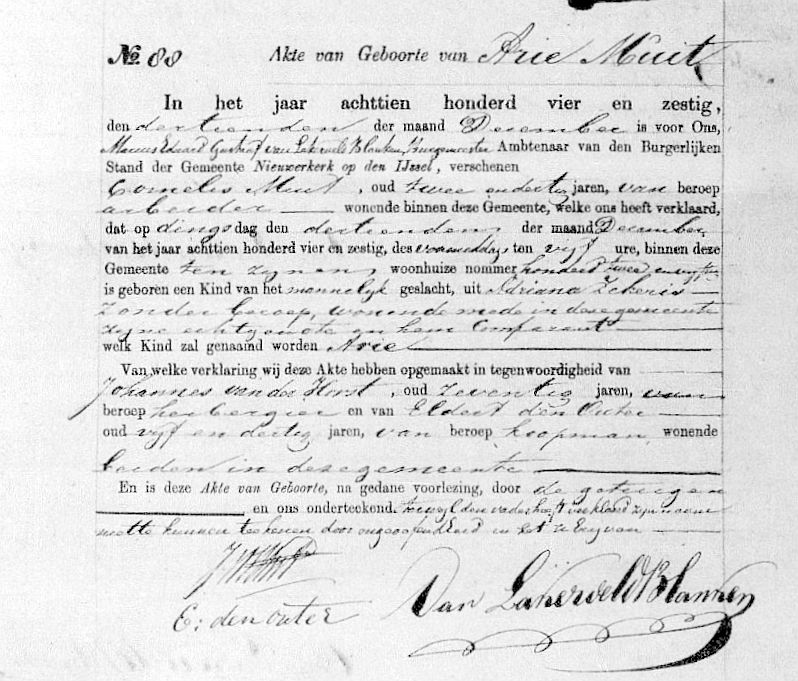 No 88 Akte van Geboorte van Arie Muit
In het jaar achttien honderd vier en zestig,
den dertienden der maand December is voor Ons,
Eduard van Lakerveld Blanken, Burgemeester Ambtenaar van den Burgerlijken
Stand der Gemeente Nieuwerkerk op den IJssel, verschenen
Cornelis Muit, oud twee en dertig jaren, van beroep
arbeider wonende binnen deze Gemeente, welke ons heeft verklaard,
dat op dingsdag den dertienden der maand December
van het jaar achttien honderd vier en zestig, des voormiddags ten vijf ure, binnen deze
Gemeente ten zynen woonhuize nommer honderd twee en
is geboren een Kind van het mannelyk geslacht, uit Adriana Zekeris
zonder beroep, wonende mede in deze gemeente
zyne echtgenoote en hem Comparant
welk Kind zal genaamd worden Arie
Van welke verklaring wij deze Akte hebben opgemaakt in tegenwoordigheid van
Johannes van der Horst, oud zeventig jaren, van
beroep herbergier en van Eldert den Outer
oud vyf en dertig jaren, van beroep koopman wonende
beiden in deze gemeente
En is deze Akte van Geboorte, na gedane voorlezing, door de getuigen
en ons onderteekend. terwyl den vader heeft verklaard zyn naam
niet te kunnen teekenen door ongeoefendheid in het schryven
E: den outer Van Lakerveld Blanken